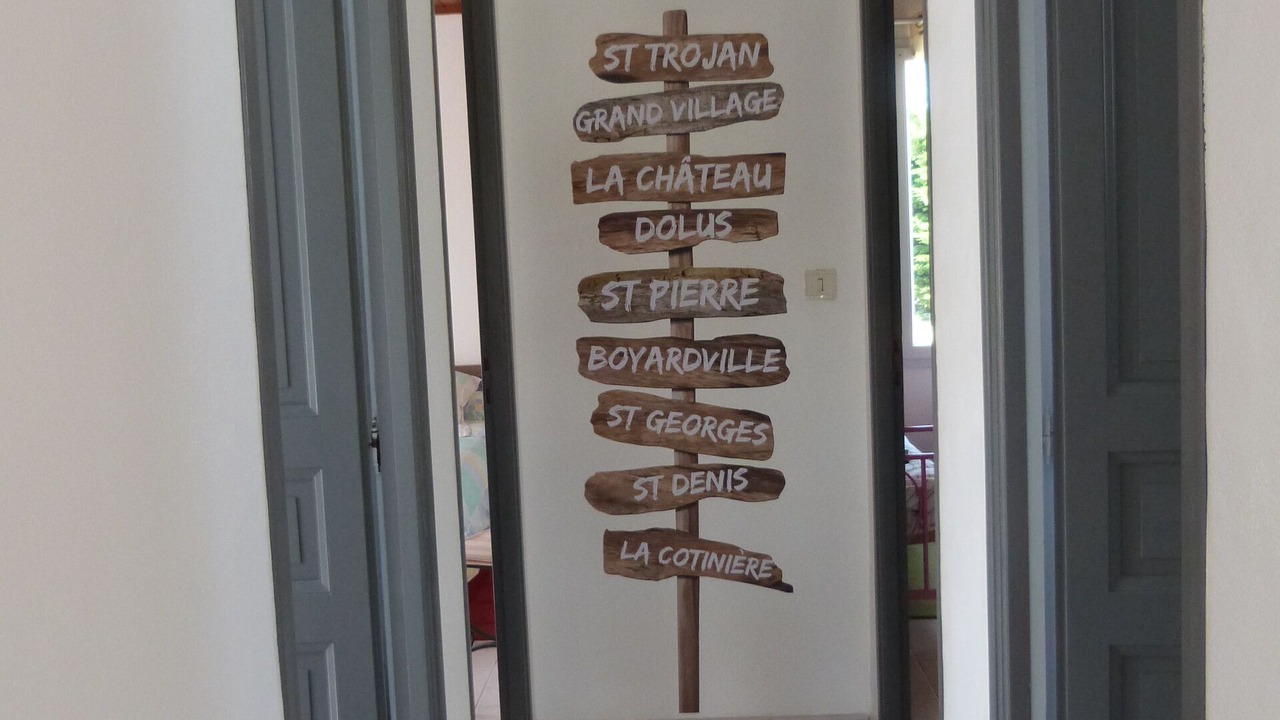 ST TROJAN
GRAND VILLAGE
LA CHÂTEAU
DOLUS
ST PIERRE
BOYARDVILLE
ST GEORGES
ST DENIS
LA COTINIÈRE